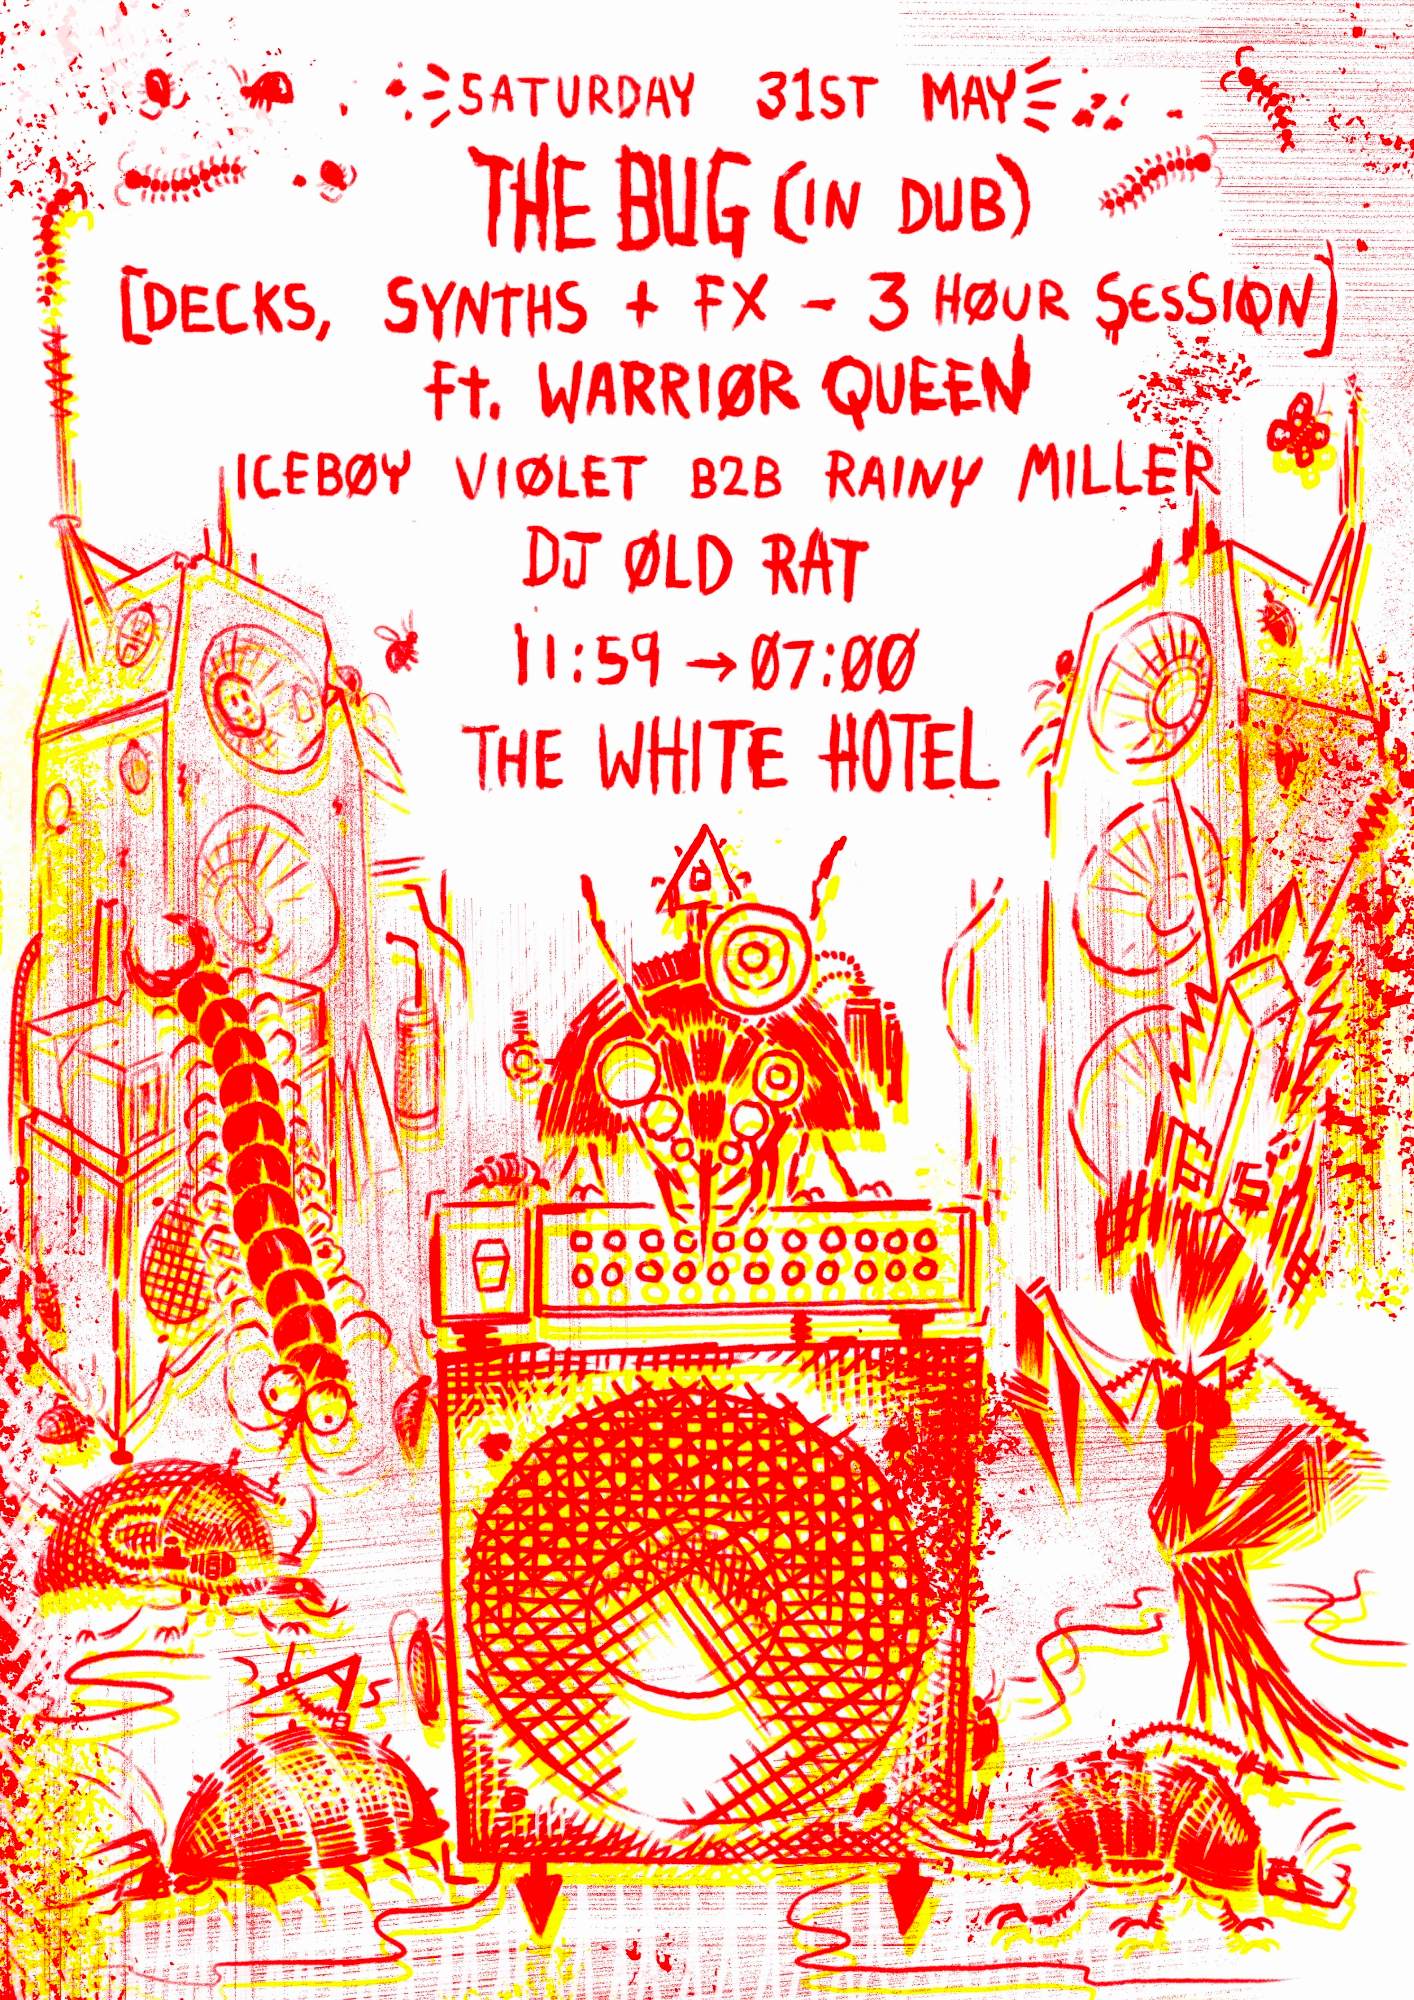 SATURDAY 31ST MAY
THE BUG (IN DUB)
[DECKS, SYNTHS + FX - 3 HØUR SESSIØN]
Ft. WARRIØR QUEEN
ICEBØY VIØLET B2B RAINY MILLER
DJ ØLD RAT
11:59 → Ø7:ØØ
THE WHITE HOTEL